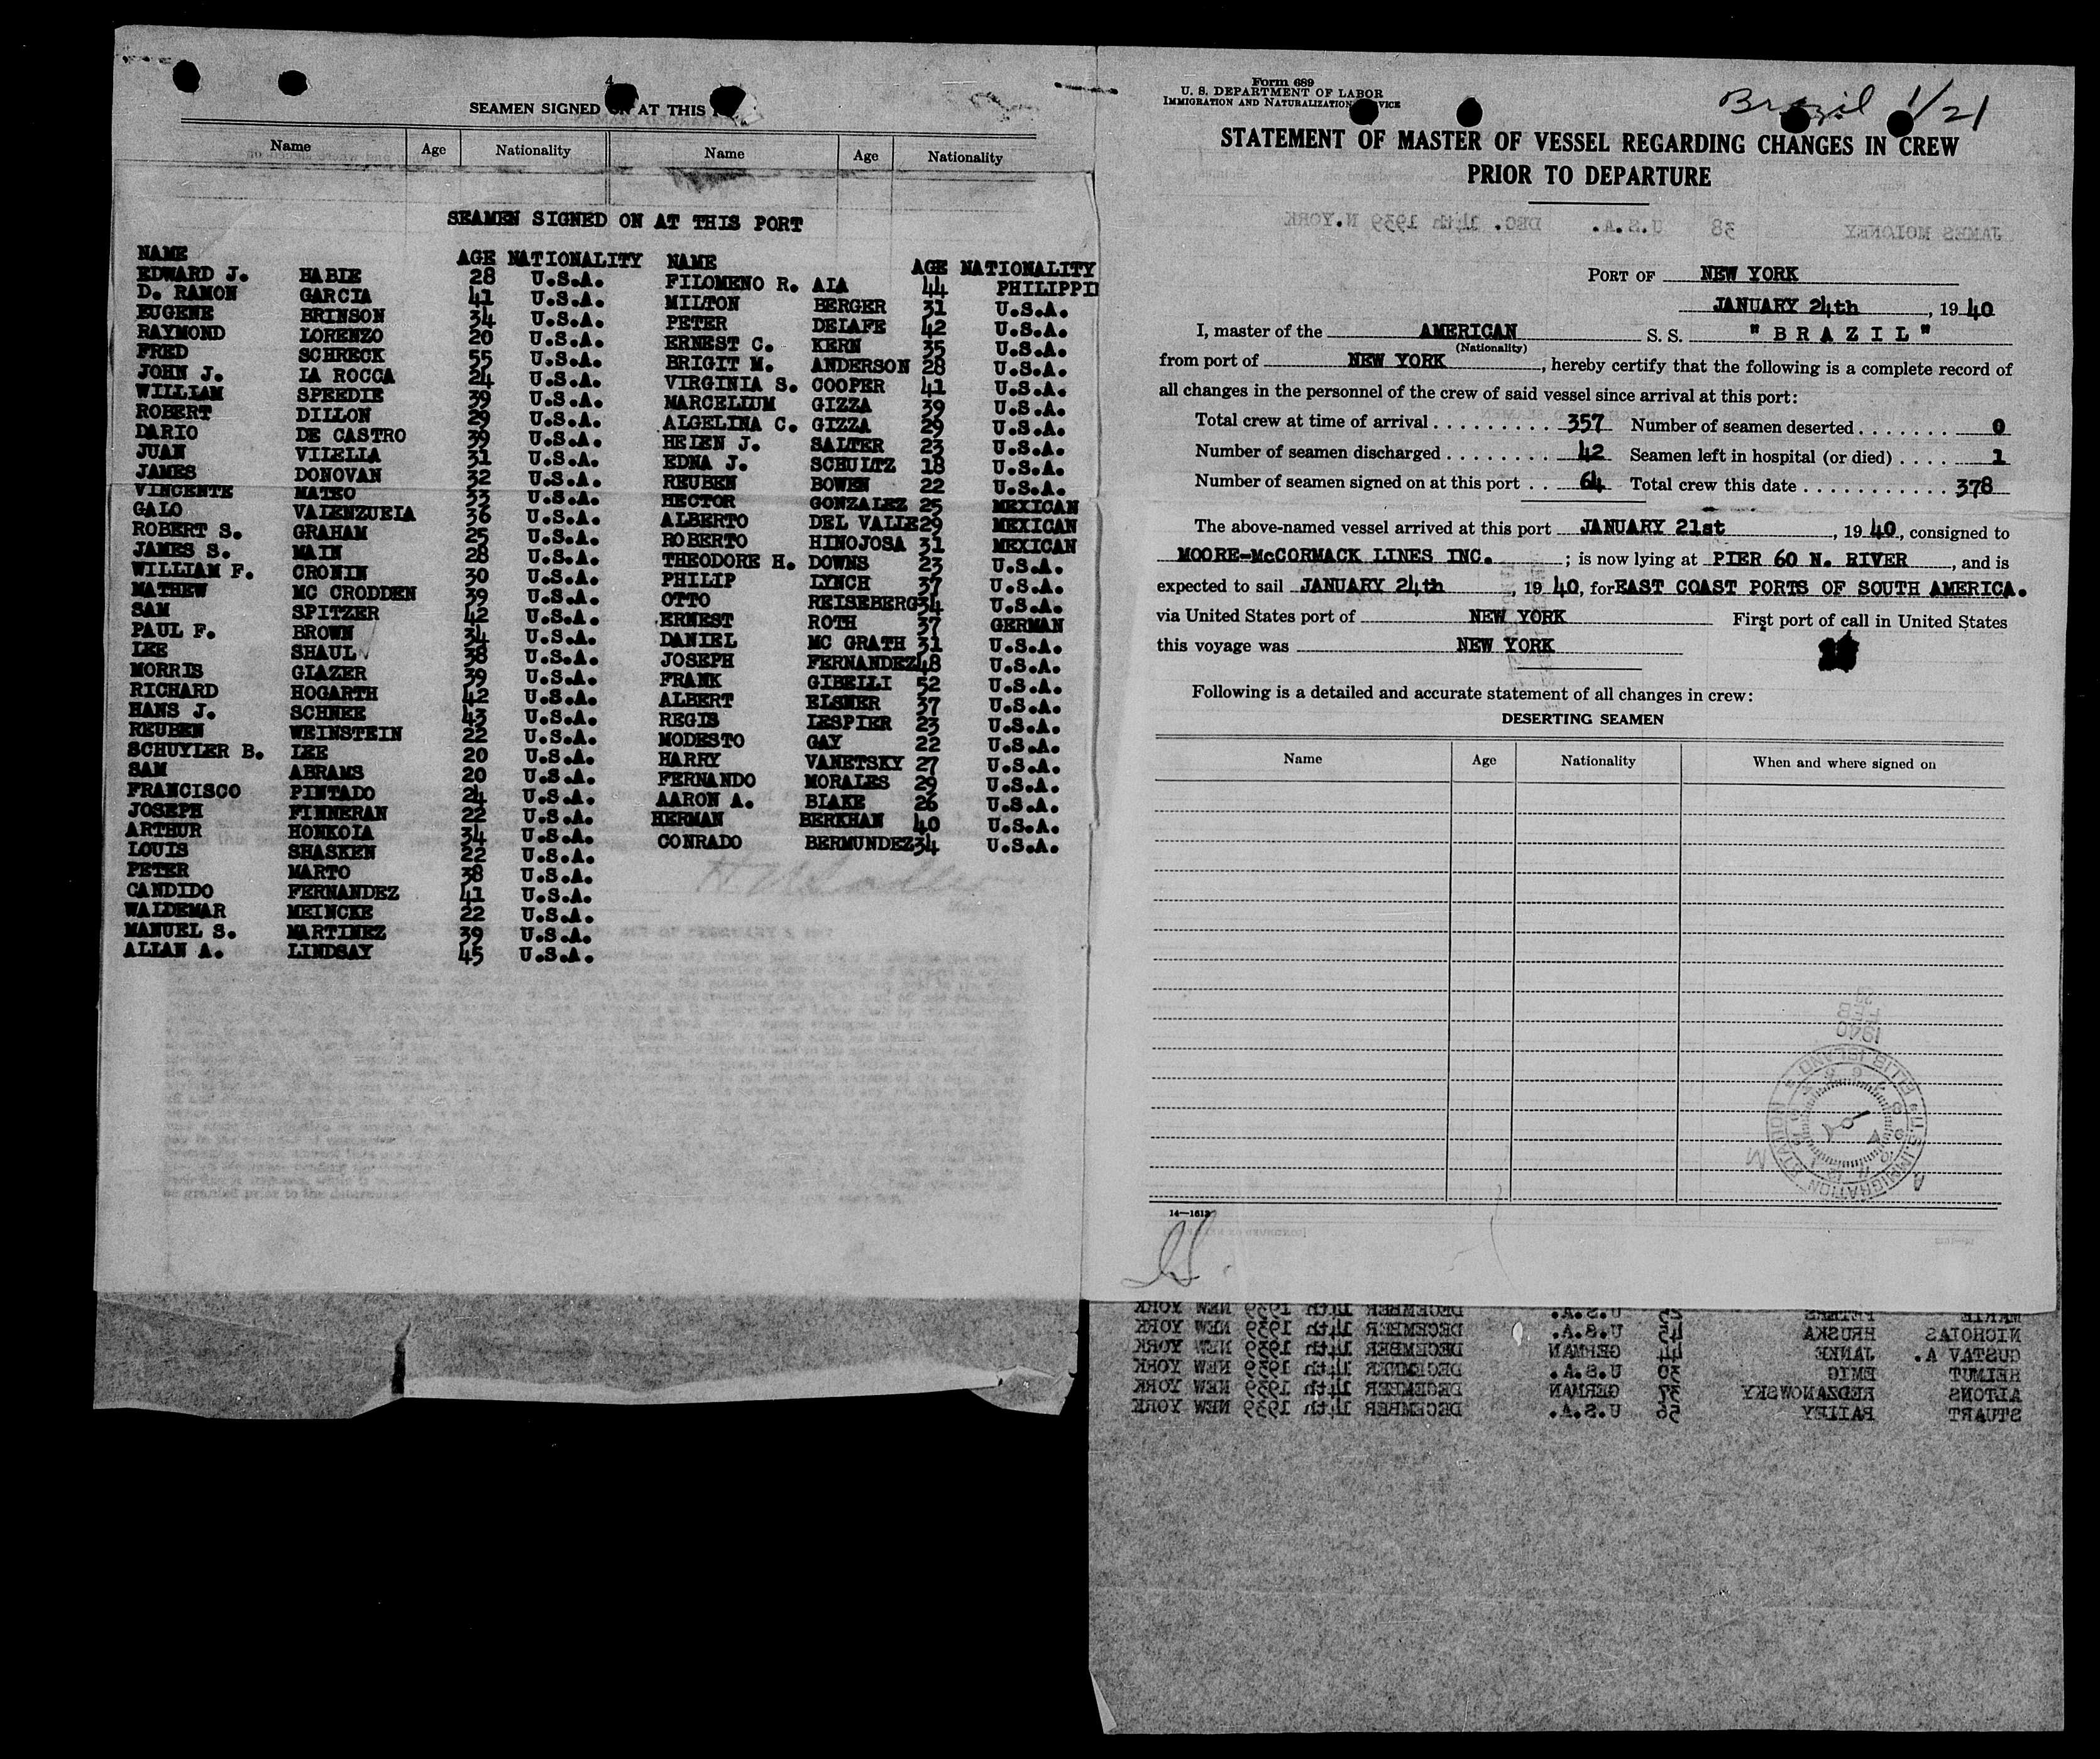 4
SEAMEN SIGNED ON AT THIS
Name Age Nationality Name Age Nationality
SEAMEN SIGNED ON AT THIS PORT
NAME AGE NATIONALITY NAME AGE NATIONALITY
EDWARD J. HABIE 28 U.S.A. FILOMENO R. AIA 44 PHILIPPI
D. RAMON GARCIA 41 U.S.A. MILTON BERGER 31 U.S.A.
EUGENE BRINSON 34 U.S.A. PETER DELAFE 42 U.S.A.
RAYMOND LORENZO 20 U.S.A. ERNEST C. KERN 35 U.S.A.
FRED SCHRECK 55 U.S.A. BRIGIT M. ANDERSON 28 U.S.A.
JOHN J. LA ROCCA 24 U.S.A. VIRGINIA S. COOPER 41 U.S.A.
WILLIAM SPEEDIE 39 U.S.A. MARCELIUM GIZZA 39 U.S.A.
ROBERT DILLON 29 U.S.A. ALGELINA C. GIZZA 29 U.S.A.
DARIO DE CASTRO 39 U.S.A. HELEN J. SALTER 23 U.S.A.
JUAN VILELLA 31 U.S.A. EDNA J. SCHULTZ 18 U.S.A.
JAMES DONOVAN 32 U.S.A. REUBEN BOWEN 22 U.S.A.
VINCENTE MATEO 33 U.S.A. HECTOR GONZALEZ 25 MEXICAN
GALO VALENZUELA 36 U.S.A. ALBERTO DEL VALLE 29 MEXICAN
ROBERT S. GRAHAM 25 U.S.A. ROBERTO HINOJOSA 31 MEXICAN
JAMES S. MAIN 28 U.S.A. THEODORE H. DOWNS 23 U.S.A.
WILLIAM F. CRONIN 30 U.S.A. PHILIP LYNCH 37 U.S.A.
MATHEW MC CRODDEN 39 U.S.A. OTTO REISEBERG 34 U.S.A.
SAM SPITZER 42 U.S.A. ERNEST ROTH 37 GERMAN
PAUL F. BROWN 34 U.S.A. DANIEL MC GRATH 31 U.S.A.
LEE SHAUL 38 U.S.A. JOSEPH FERNANDEZ 48 U.S.A.
MORRIS GLAZER 39 U.S.A. FRANK GIBELLI 52 U.S.A.
RICHARD HOGARTH 42 U.S.A. ALBERT ELSNER 37 U.S.A.
HANS J. SCHNEE 43 U.S.A. REGIS LESPIER 23 U.S.A.
REUBEN WEINSTEIN 22 U.S.A. MODESTO GAY 22 U.S.A.
SCHUYLER B. LEE 20 U.S.A. HARRY VANETSKY 27 U.S.A.
SAM ABRAMS 20 U.S.A. FERNANDO MORALES 29 U.S.A.
FRANCISCO PINTADO 24 U.S.A. AARON A. BLAKE 26 U.S.A.
JOSEPH FINNERAN 22 U.S.A. HERMAN BERKHAN 40 U.S.A.
ARTHUR HONKOLA 34 U.S.A. CONRADO BERMUNDEZ 34 U.S.A.
LOUIS SHASKEN 22 U.S.A.
PETER MARTO 38 U.S.A.
CANDIDO FERNANDEZ 41 U.S.A.
WALDEMAR MEINCKE 22 U.S.A.
MANUEL S. MARTINEZ 39 U.S.A.
ALLAN A. LINDSAY 45 U.S.A.
Form 689
U. S. DEPARTMENT OF LABOR
IMMIGRATION AND NATURALIZATION SERVICE
Brazil 1/21
STATEMENT OF MASTER OF VESSEL REGARDING CHANGES IN CREW
PRIOR TO DEPARTURE
JAMES MOLONEY 38 U.S.A. DEC. 14th 1939 N.YORK
PORT OF NEW YORK
JANUARY 24th, 19 40
I, master of the AMERICAN S. S. " B R A Z I L "
(Nationality)
from port of NEW YORK, hereby certify that the following is a complete record of
all changes in the personnel of the crew of said vessel since arrival at this port:
Total crew at time of arrival . . . . . . . . . 357 Number of seamen deserted . . . . . . . 0
Number of seamen discharged . . . . . . . . 42 Seamen left in hospital (or died) . . . . 1
Number of seamen signed on at this port . . 64 Total crew this date . . . . . . . . . . . 378
The above-named vessel arrived at this port JANUARY 21st, 19 40, consigned to
MOORE-McCORMACK LINES INC. ; is now lying at PIER 60 N. RIVER, and is
expected to sail JANUARY 24th, 19 40, for EAST COAST PORTS OF SOUTH AMERICA.
via United States port of NEW YORK First port of call in United States
this voyage was NEW YORK
Following is a detailed and accurate statement of all changes in crew:
DESERTING SEAMEN
Name Age Nationality When and where signed on
1940
FEB
U.S. IMMIGRATION STATION ELLIS ISLAND
14—1612
NICHOLAS HRUSKA 45 U.S.A. DECEMBER 14th 1939 NEW YORK
GUSTAV A. JANKE 44 GERMAN DECEMBER 14th 1939 NEW YORK
HELMUT EMIG 30 U.S.A. DECEMBER 14th 1939 NEW YORK
ALFONS REDZANOWSKY 37 GERMAN DECEMBER 14th 1939 NEW YORK
STUART BAILEY 56 U.S.A. DECEMBER 14th 1939 NEW YORK